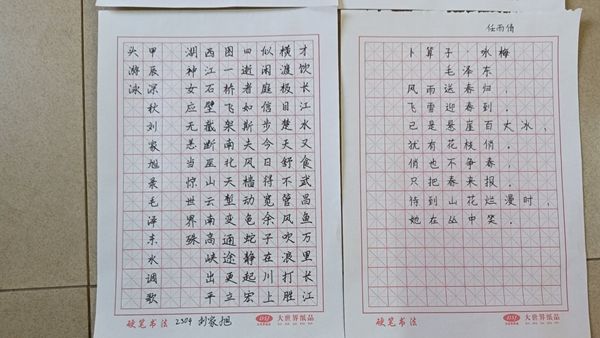 才饮长江水又食武昌鱼万里长江
横渡极目楚天舒不管风吹浪打胜
似闲庭信步今日得宽余子在川上
曰逝者如斯夫风樯动龟蛇静起宏
图一桥飞架南北天堑变通途更立
西江石壁截断巫山云雨高峡出平
湖神女应无恙当惊世界殊
甲辰凉秋刘家旭录毛泽东水调歌
头游泳
硬笔书法 2304 刘家旭 大世界纸品
任雨倩
卜算子·咏梅
毛泽东
风雨送春归，
飞雪迎春到。
已是悬崖百丈冰，
犹有花枝俏。
俏也不争春，
只把春来报。
待到山花烂漫时，
她在丛中笑。
硬笔书法 大世界纸品